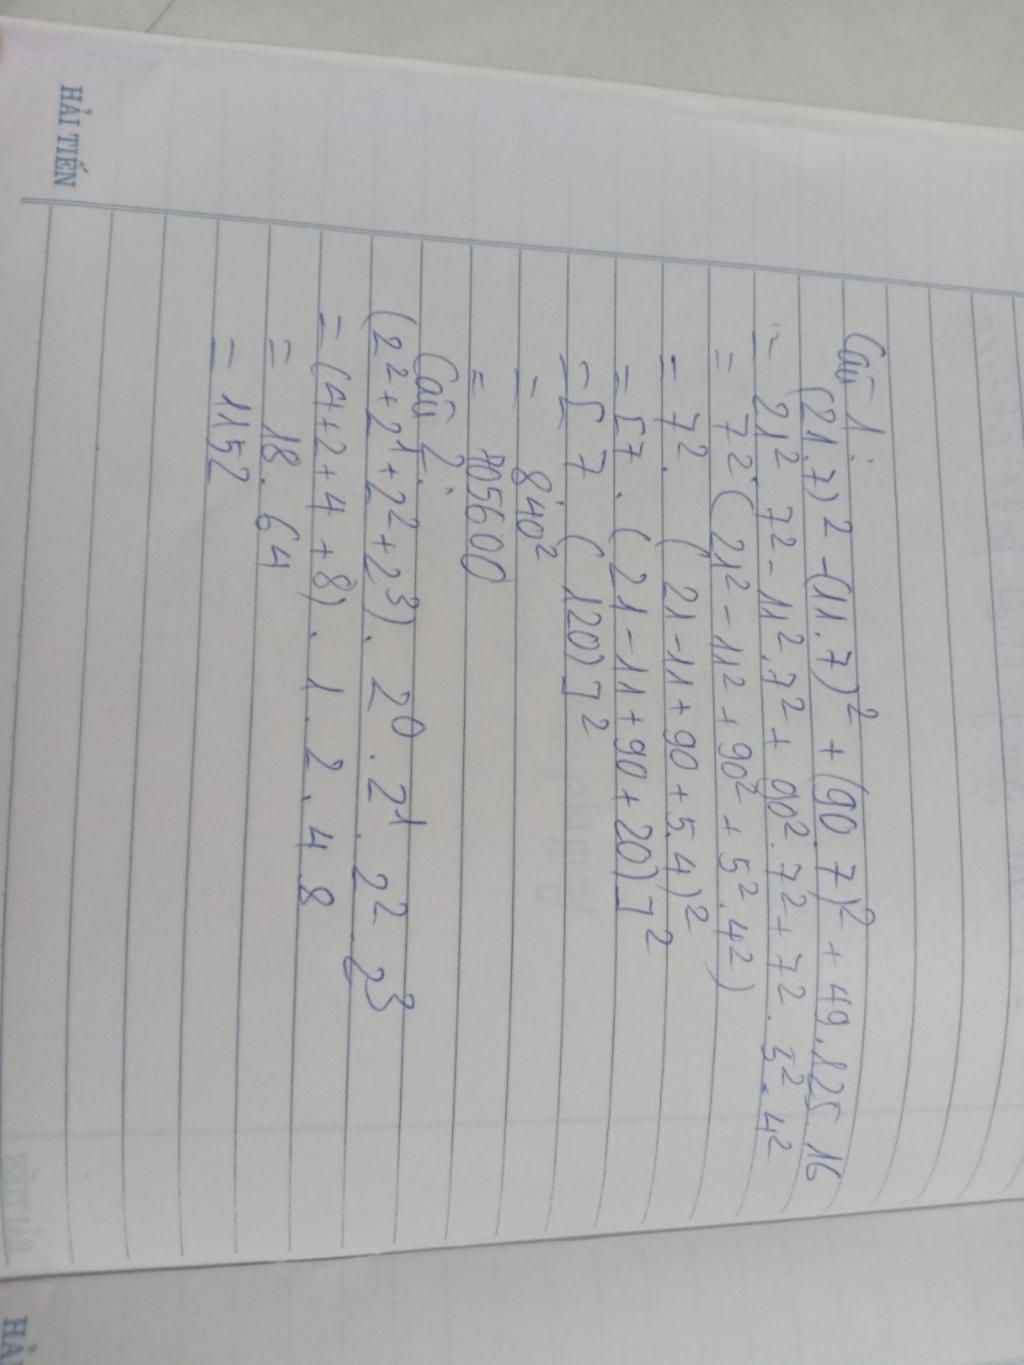 HẢI TIẾN
Câu 1:
(21.7)² -(11.7)² + (90.7)² + 49.125.16
= 21² 7² - 11².7² + 90².7² + 7².5².4²
= 7²(21² - 11² + 90² + 5².4²)
= 7². (21 - 11 + 90 + 5.4)²
= [7. (21 - 11 + 90 + 20)]²
= [7 (120)]²
= 840²
= 705600
Câu 2:
(2² + 2¹ + 2² + 2³). 2⁰. 2¹. 2². 2³
= (4 + 2 + 4 + 8). 1. 2. 4 8
= 18. 64
= 1152